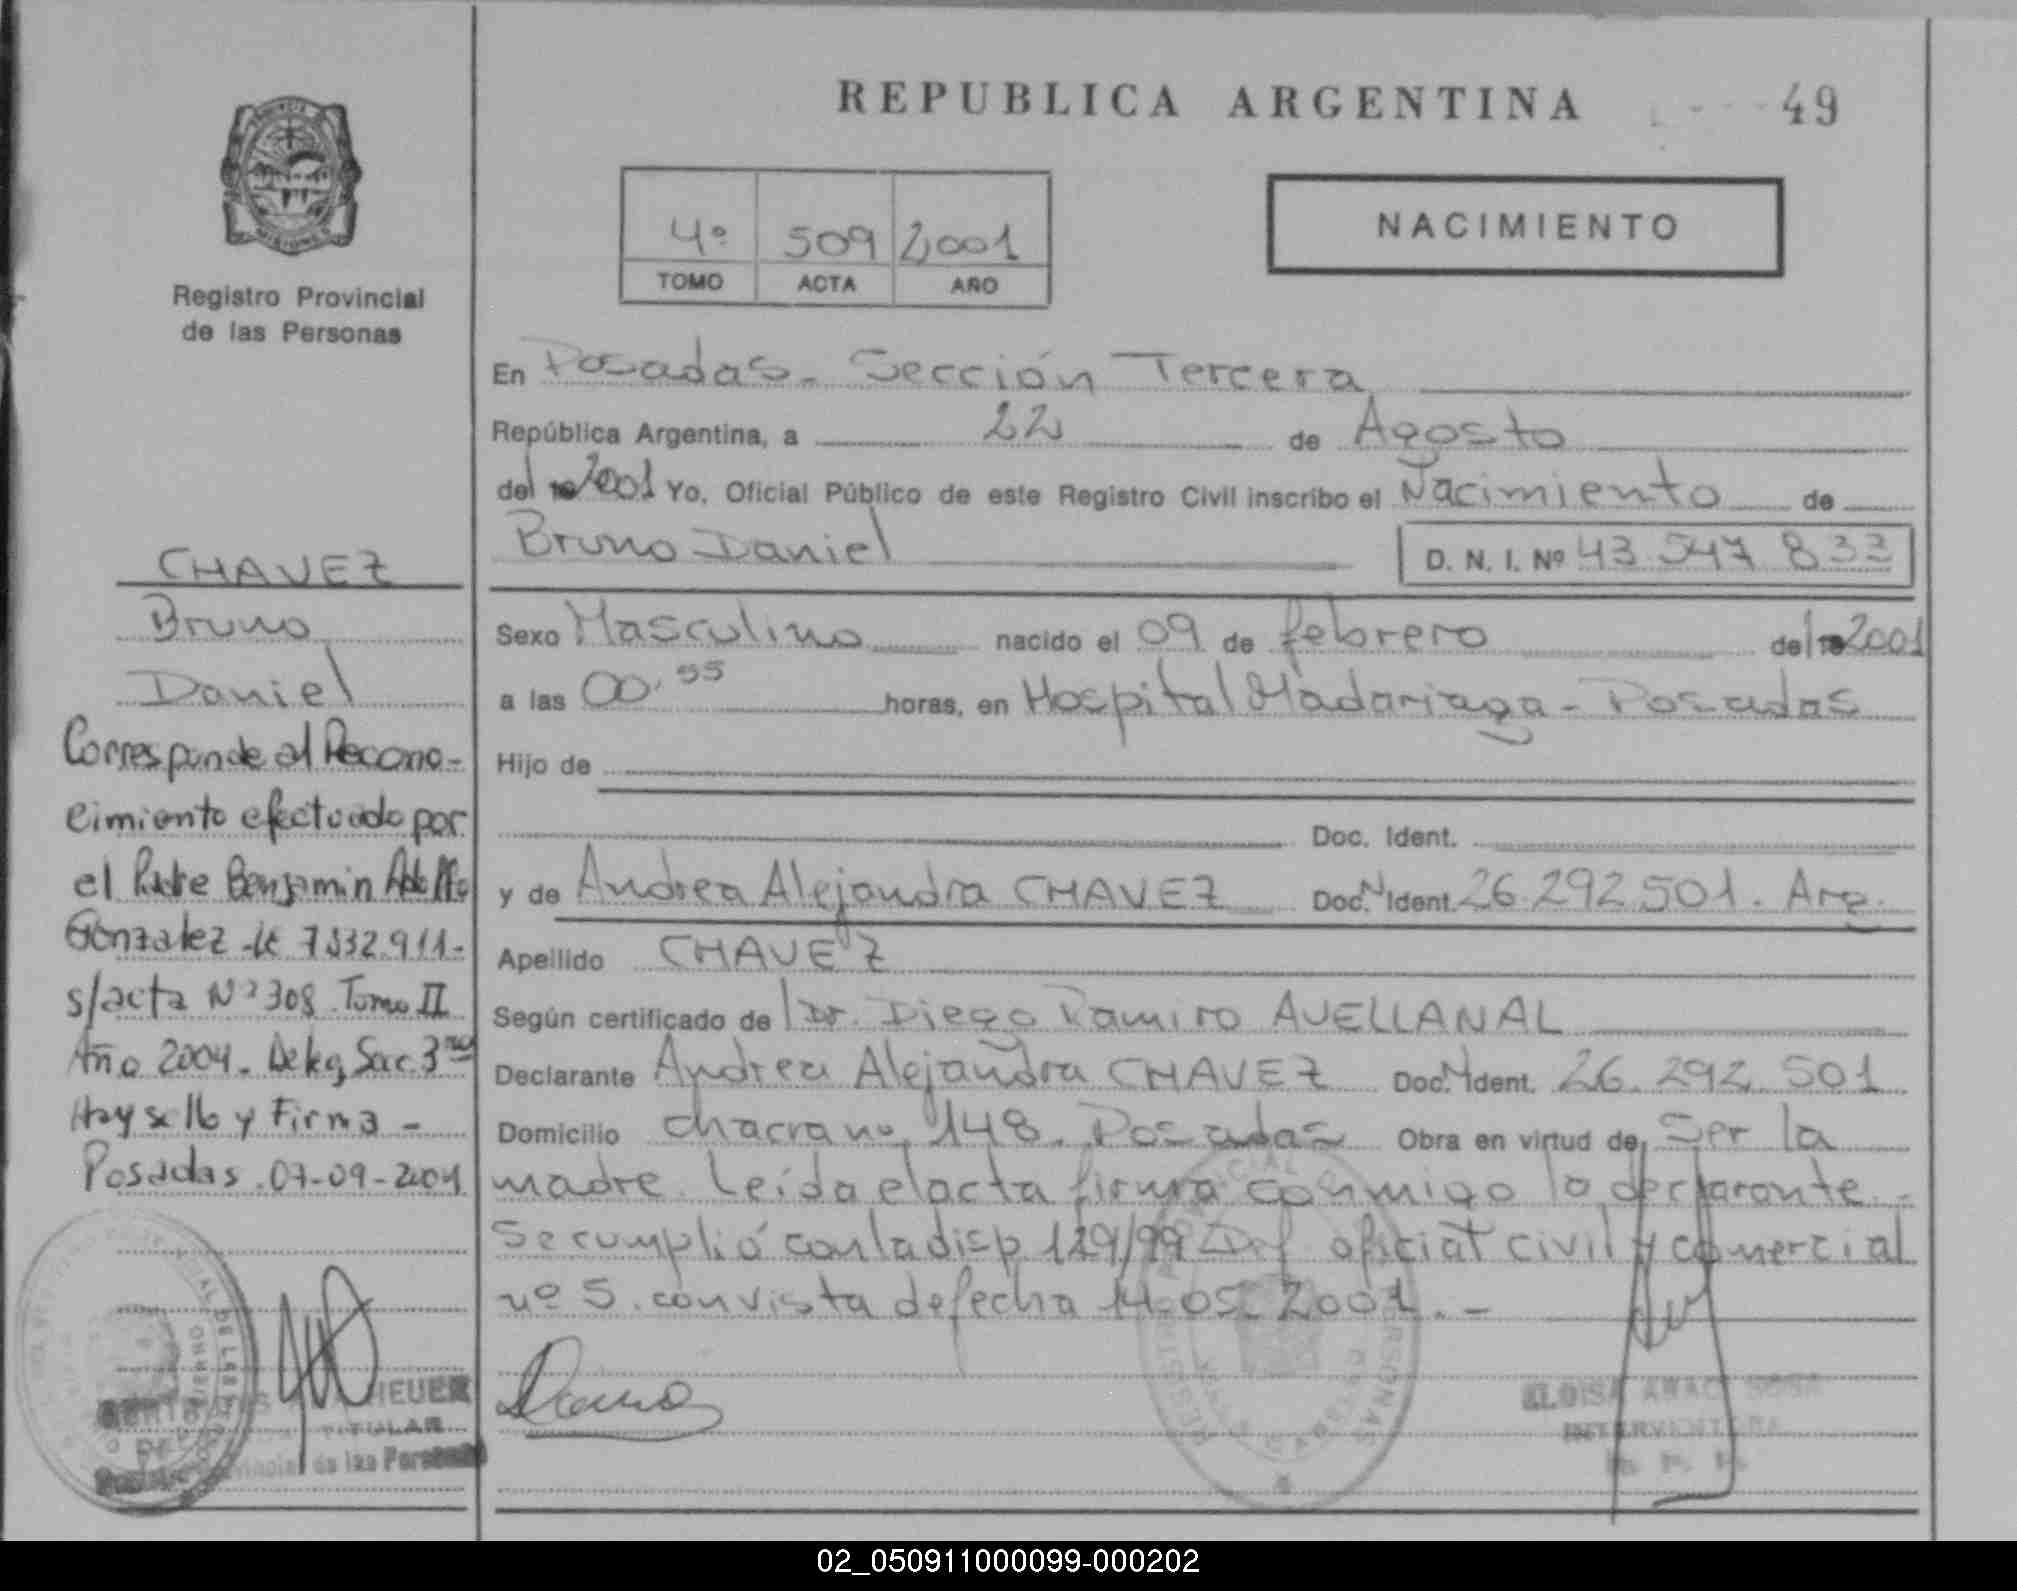 REPUBLICA ARGENTINA
49
NACIMIENTO
4º 509 2001
TOMO ACTA AÑO
Registro Provincial
de las Personas
CHAVEZ
Bruno
Daniel
Corresponde al Recono-
cimiento efectuado por
el Padre Benjamin Adolfo
Gonzalez - 7532.911-
s/acta Nº 308 Tomo II
Año 2004. Deleg. Sec. 3ra
Hay sello y Firma -
Posadas 07-09-2004
TITULAR
Provincial de las Personas
En Posadas - Sección Tercera
República Argentina, a 22 de Agosto
del 2001 Yo, Oficial Público de este Registro Civil inscribo el Nacimiento de
Bruno Daniel D. N. I. Nº 43 547 833
Sexo Masculino nacido el 09 de febrero del 2001
a las 00,55 horas, en Hospital Madariaga - Posadas
Hijo de
Doc. Ident.
y de Andrea Alejandra CHAVEZ Doc.N Ident. 26.292.501. Arg.
Apellido CHAVEZ
Según certificado de Dr. Diego Ramiro AVELLANAL
Declarante Andrea Alejandra CHAVEZ Doc.N Ident. 26.292.501
Domicilio chacra nº 148. Posadas Obra en virtud de Ser la
madre. Leída el acta firma conmigo la declarante -
Se cumplió con la disp 129/99 Def oficial civil y comercial
nº 5. con vista de fecha 14.05.2001. -
ELOISA SOSA
INTERVENTORA
02_050911000099-000202